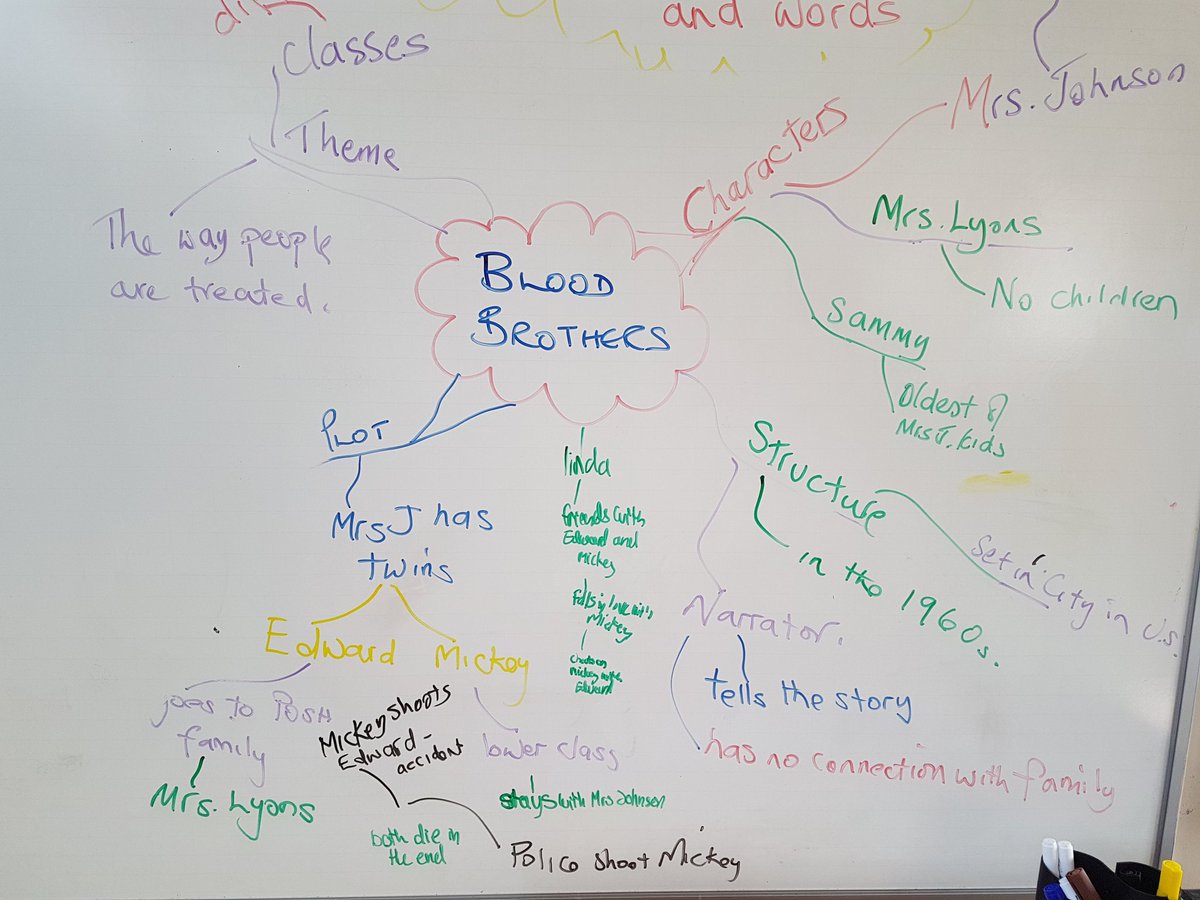 and words
Classes
Theme
The way people
are treated.
BLOOD
BROTHERS
Characters
Mrs. Johnson
Mrs. Lyons
No children
Sammy
Oldest of
Mrs J. kids
Structure
in the 1960s.
Set in City in
Narrator.
tells the story
has no connection with family
linda
friends with
Edward and
Mickey
falls in love with
Mickey
Cheats on
Mickey with
Edward
PLOT
Mrs J has
twins
Edward
goes to POSH
family
Mrs. Lyons
Mickey
lower class
stays with Mrs Johnson
Mickey shoots
Edward -
accident
both die in
the end
Police shoot Mickey